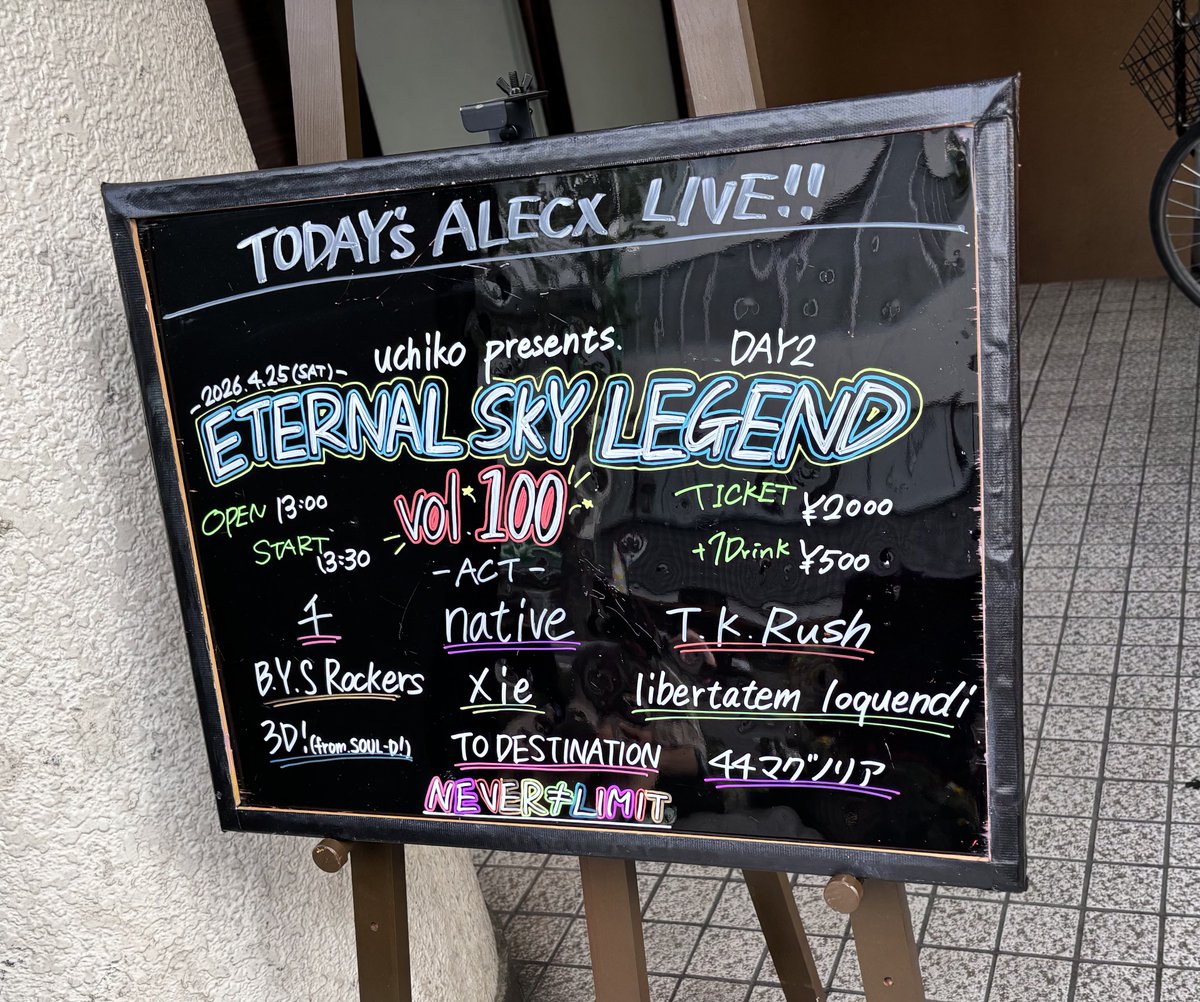 TODAY's ALECX LIVE!!
uchiko presents. DAY2
-2026.4.25(SAT)-
ETERNAL SKY LEGEND
vol.100
OPEN 13:00
START 13:30
TICKET ¥2000
+1Drink ¥500
-ACT-
千 native T.K.Rush
B.Y.S Rockers Xie libertatem loquendi
3D!(from.SOUL-D!) TO DESTINATION 44マグノリア
NEVER≠LIMIT